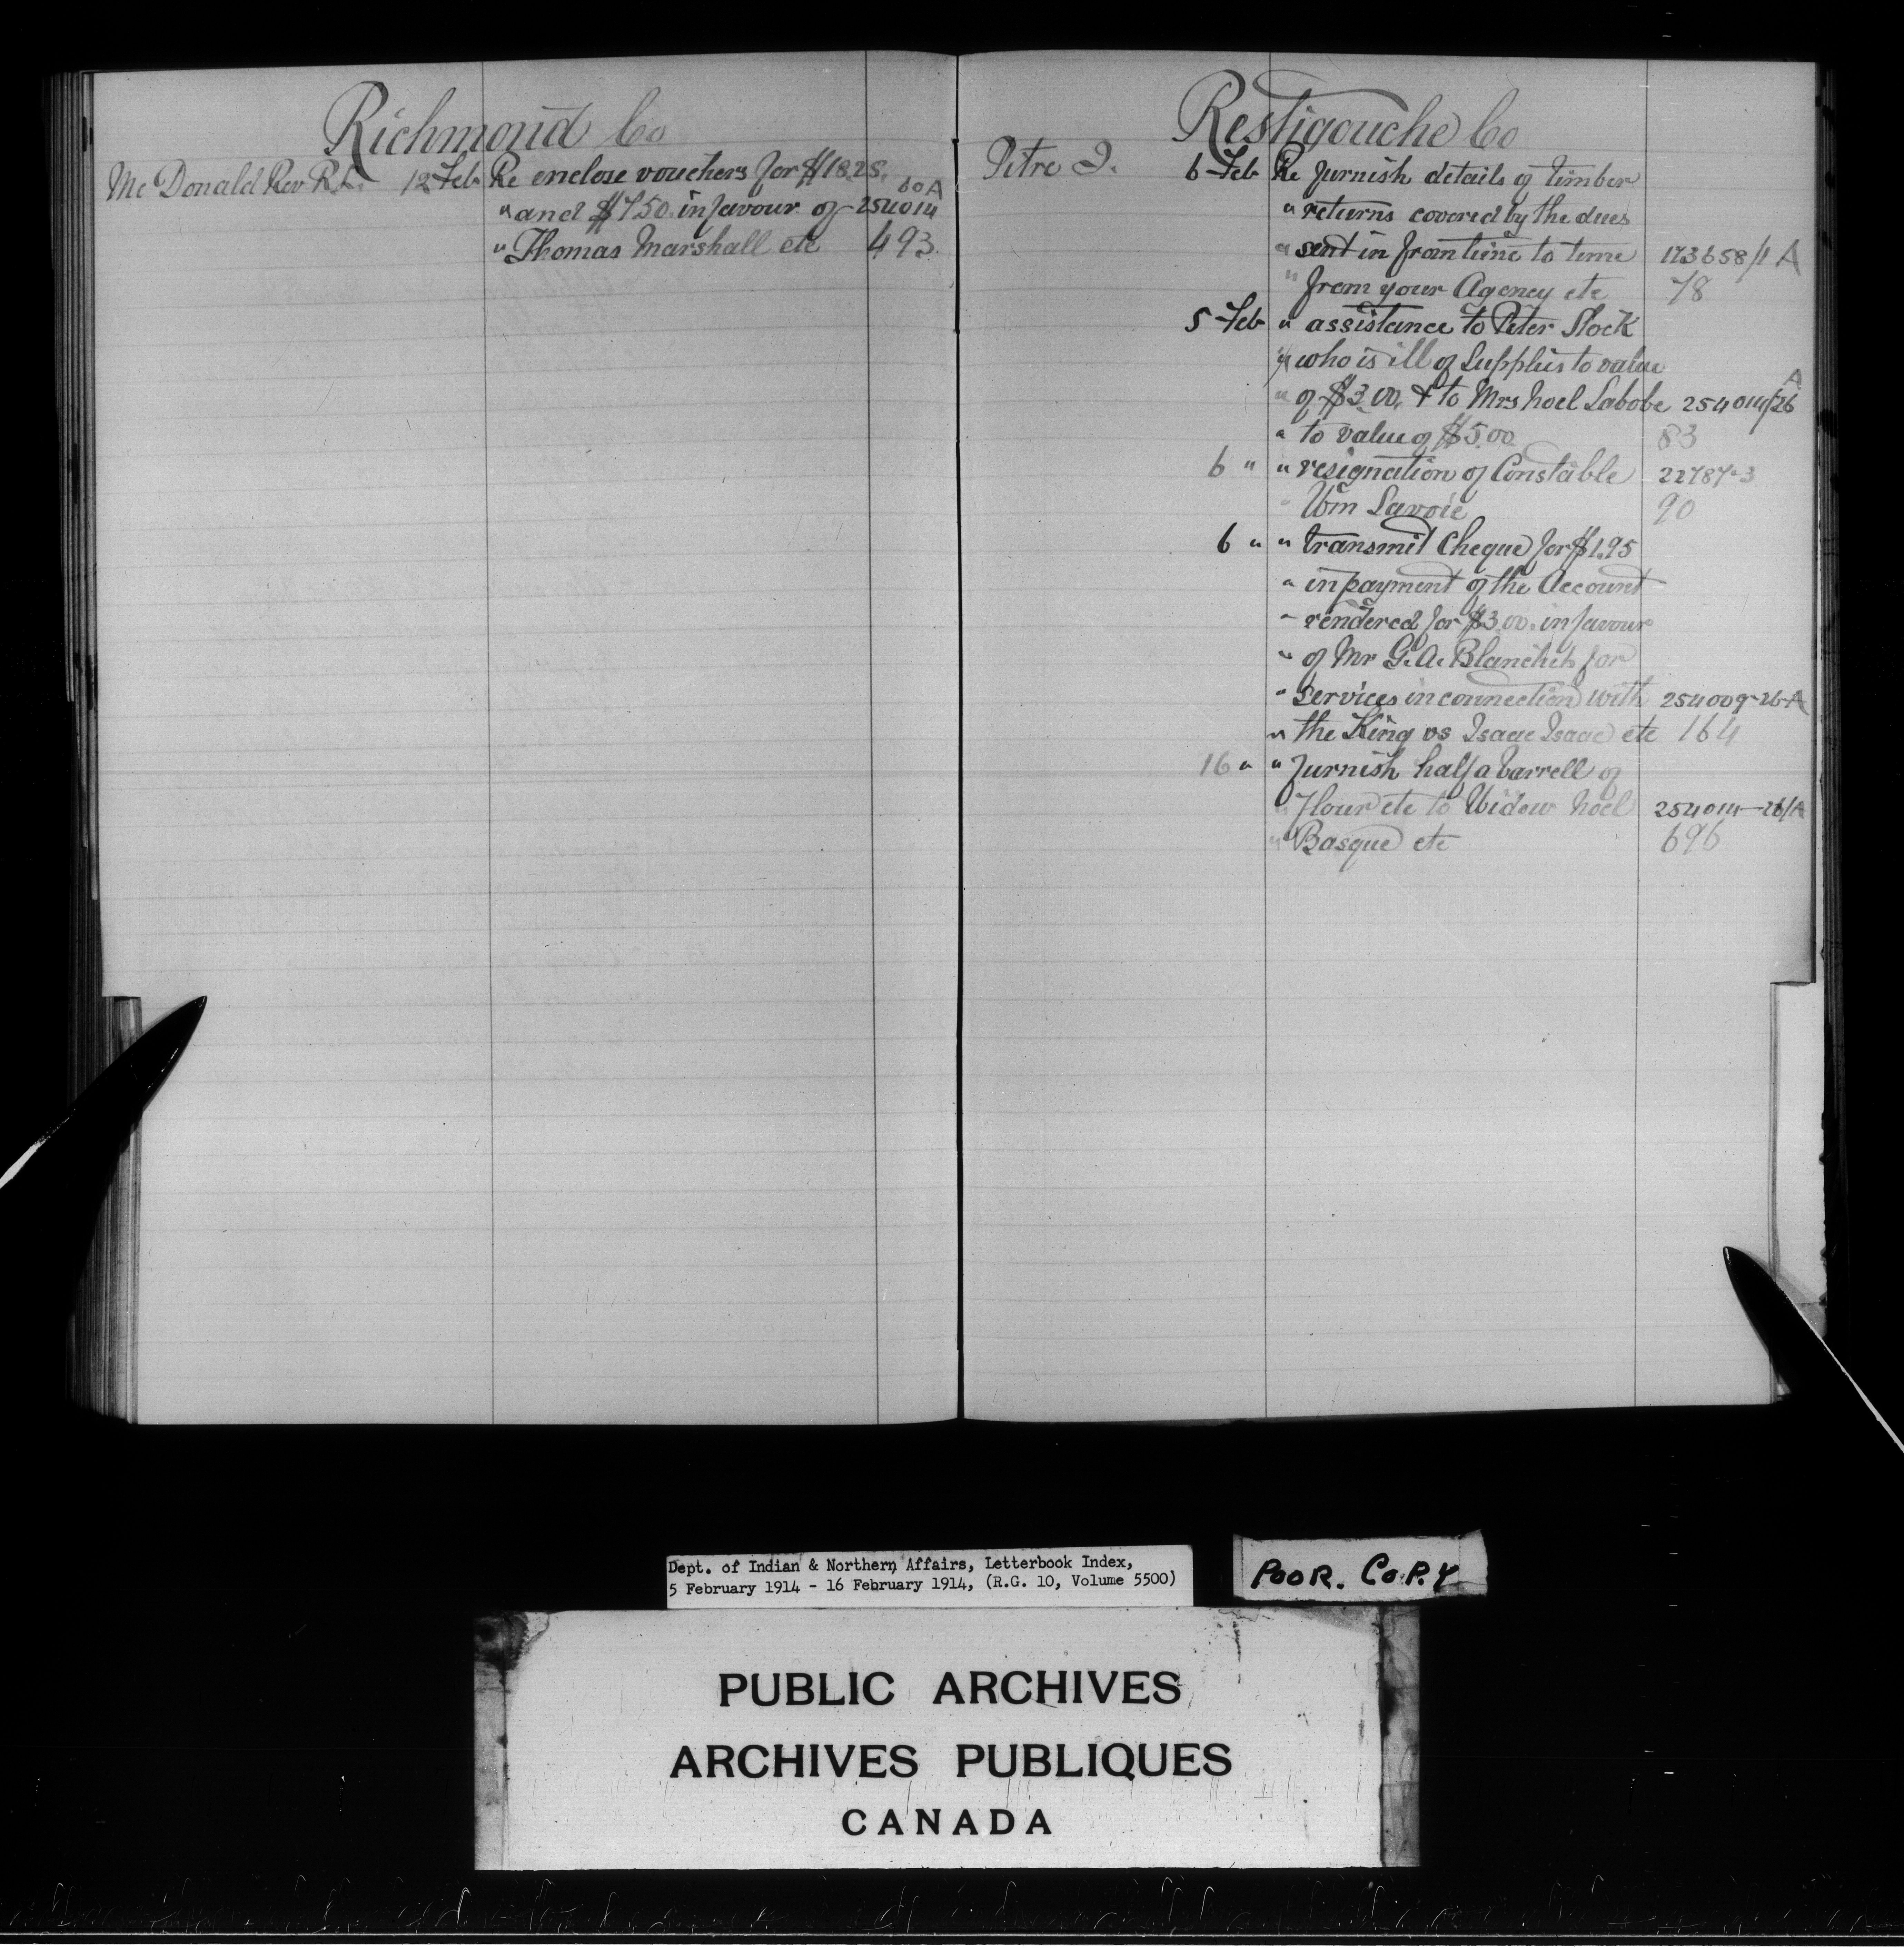 Richmond Co
Mc Donald Rev R.L. 12 Feb Re enclose vouchers for $18.25.
" and $7.50 in favour of 254014 60A
" Thomas Marshall etc 493
Restigouche Co
Pitre J. 6 Feb Re furnish details of timber
" returns covered by the dues
" sent in from time to time 173658/1 A
" from your Agency etc 78
5 Feb " assistance to Peter Slock
" who is ill of Supplies to value
" of $3.00, & to Mrs Noel Labobe 254014/26 A
" to value of $5.00 83
6 " " resignation of Constable 22787-3
" Wm Savoie 90
6 " " transmit Cheque for $1.95
" in payment of the Account
" rendered for $3.00. in favour
" of Mr G. A. Blanchet for
" services in connection with 254009-26-A
" the King vs Isaac Isaac etc 164
16 " " furnish half a barrell of
" Flour etc to Widow Noel 254014-26/A
" Basque etc 696
Dept. of Indian & Northern Affairs, Letterbook Index,
5 February 1914 - 16 February 1914, (R.G. 10, Volume 5500)
POOR. COPY
PUBLIC ARCHIVES
ARCHIVES PUBLIQUES
CANADA